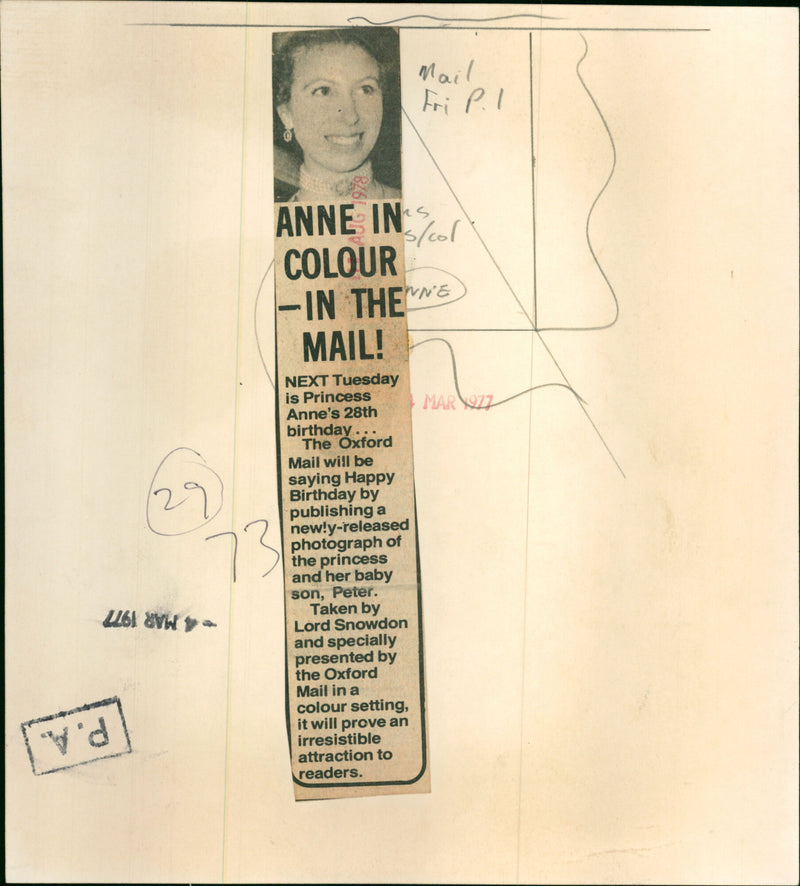 Mail
Fri P.1
AUG 1978
s/col
ANNE IN
COLOUR
—IN THE
MAIL!
NEXT Tuesday
is Princess
Anne's 28th
birthday...
The Oxford
Mail will be
saying Happy
Birthday by
publishing a
new!y-released
photograph of
the princess
and her baby
son, Peter.
Taken by
Lord Snowdon
and specially
presented by
the Oxford
Mail in a
colour setting,
it will prove an
irresistible
attraction to
readers.
4 MAR 1977
29
73
-4 MAR 1977
P.A.